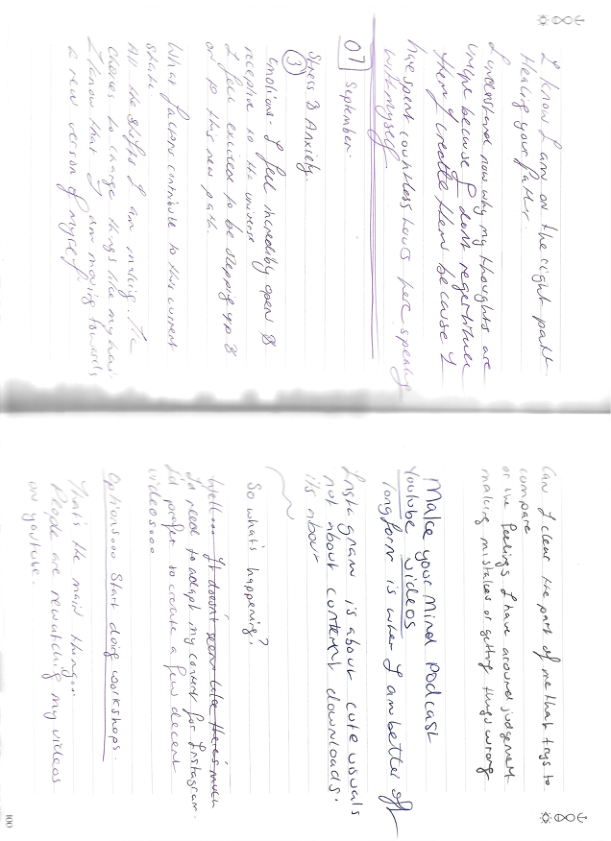 I know I am on the right path.
Healing your father.
I understand now why my thoughts are
unique because I dont regertitate
them I create them because I
have spent countless hours here speaking
with myself
07 September.
Stress & Anxiety.
3
emotions - I feel incredibly open &
receptive to the universe
I feel excited to be stepping up &
or to this new path.
What factors contribute to this current
state.
All the shifts I am making. The
choices to change things like my hair
I know that I am moving towards
a new version of myself
Can I clear the part of me that trys to
compare
or the feelings I have around judgement
making mistakes or getting things wrong
Make your mind podcast
YouTube videos
longform is where I am better off
Instagram is about cute visuals
not about content downloads.
its about
So what's happening?
Well... It doesn't seem like there's much
In need to adapt my content for Instagram.
I'd prefer to create a few decent
videos...
Options... Start doing workshops.
That's the main thing..
People are rewatching my videos
on youtube.
100